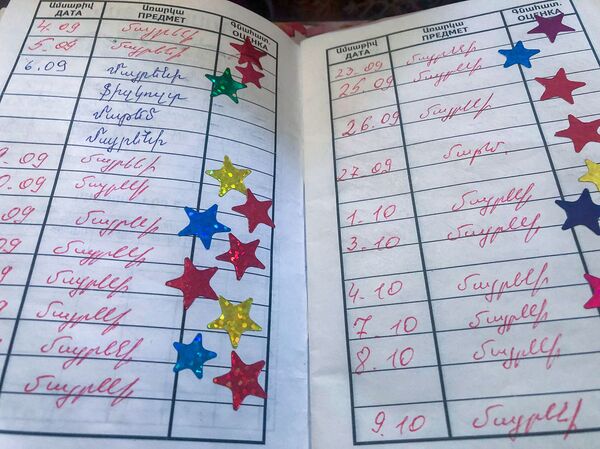 Ամսաթիվ Առարկա Գնահատ.
ДАТА ПРЕДМЕТ ОЦЕНКА
4.09 մայրենի
5.09 մայրենի
6.09 Մայրենի
Ֆիզկուլտ
Մաթեմ
Մայրենի
.09 մայրենի
0.09 մայրենի
.09 մայրենի
.09 մայրենի
09 մայրենի
09 մայրենի
մայրենի
մայրենի
Ամսաթիվ Առարկա Գնահատ.
ДАТА ПРЕДМЕТ ОЦЕНКА
23.09 մայրենի
25.09 մայրենի
26.09 մայրենի
27.09 մաթ.
1.10 մայրենի
3.10 մայրենի
4.10 մայրենի
7.10 մայրենի
8.10 մայրենի
9.10 մայրենի